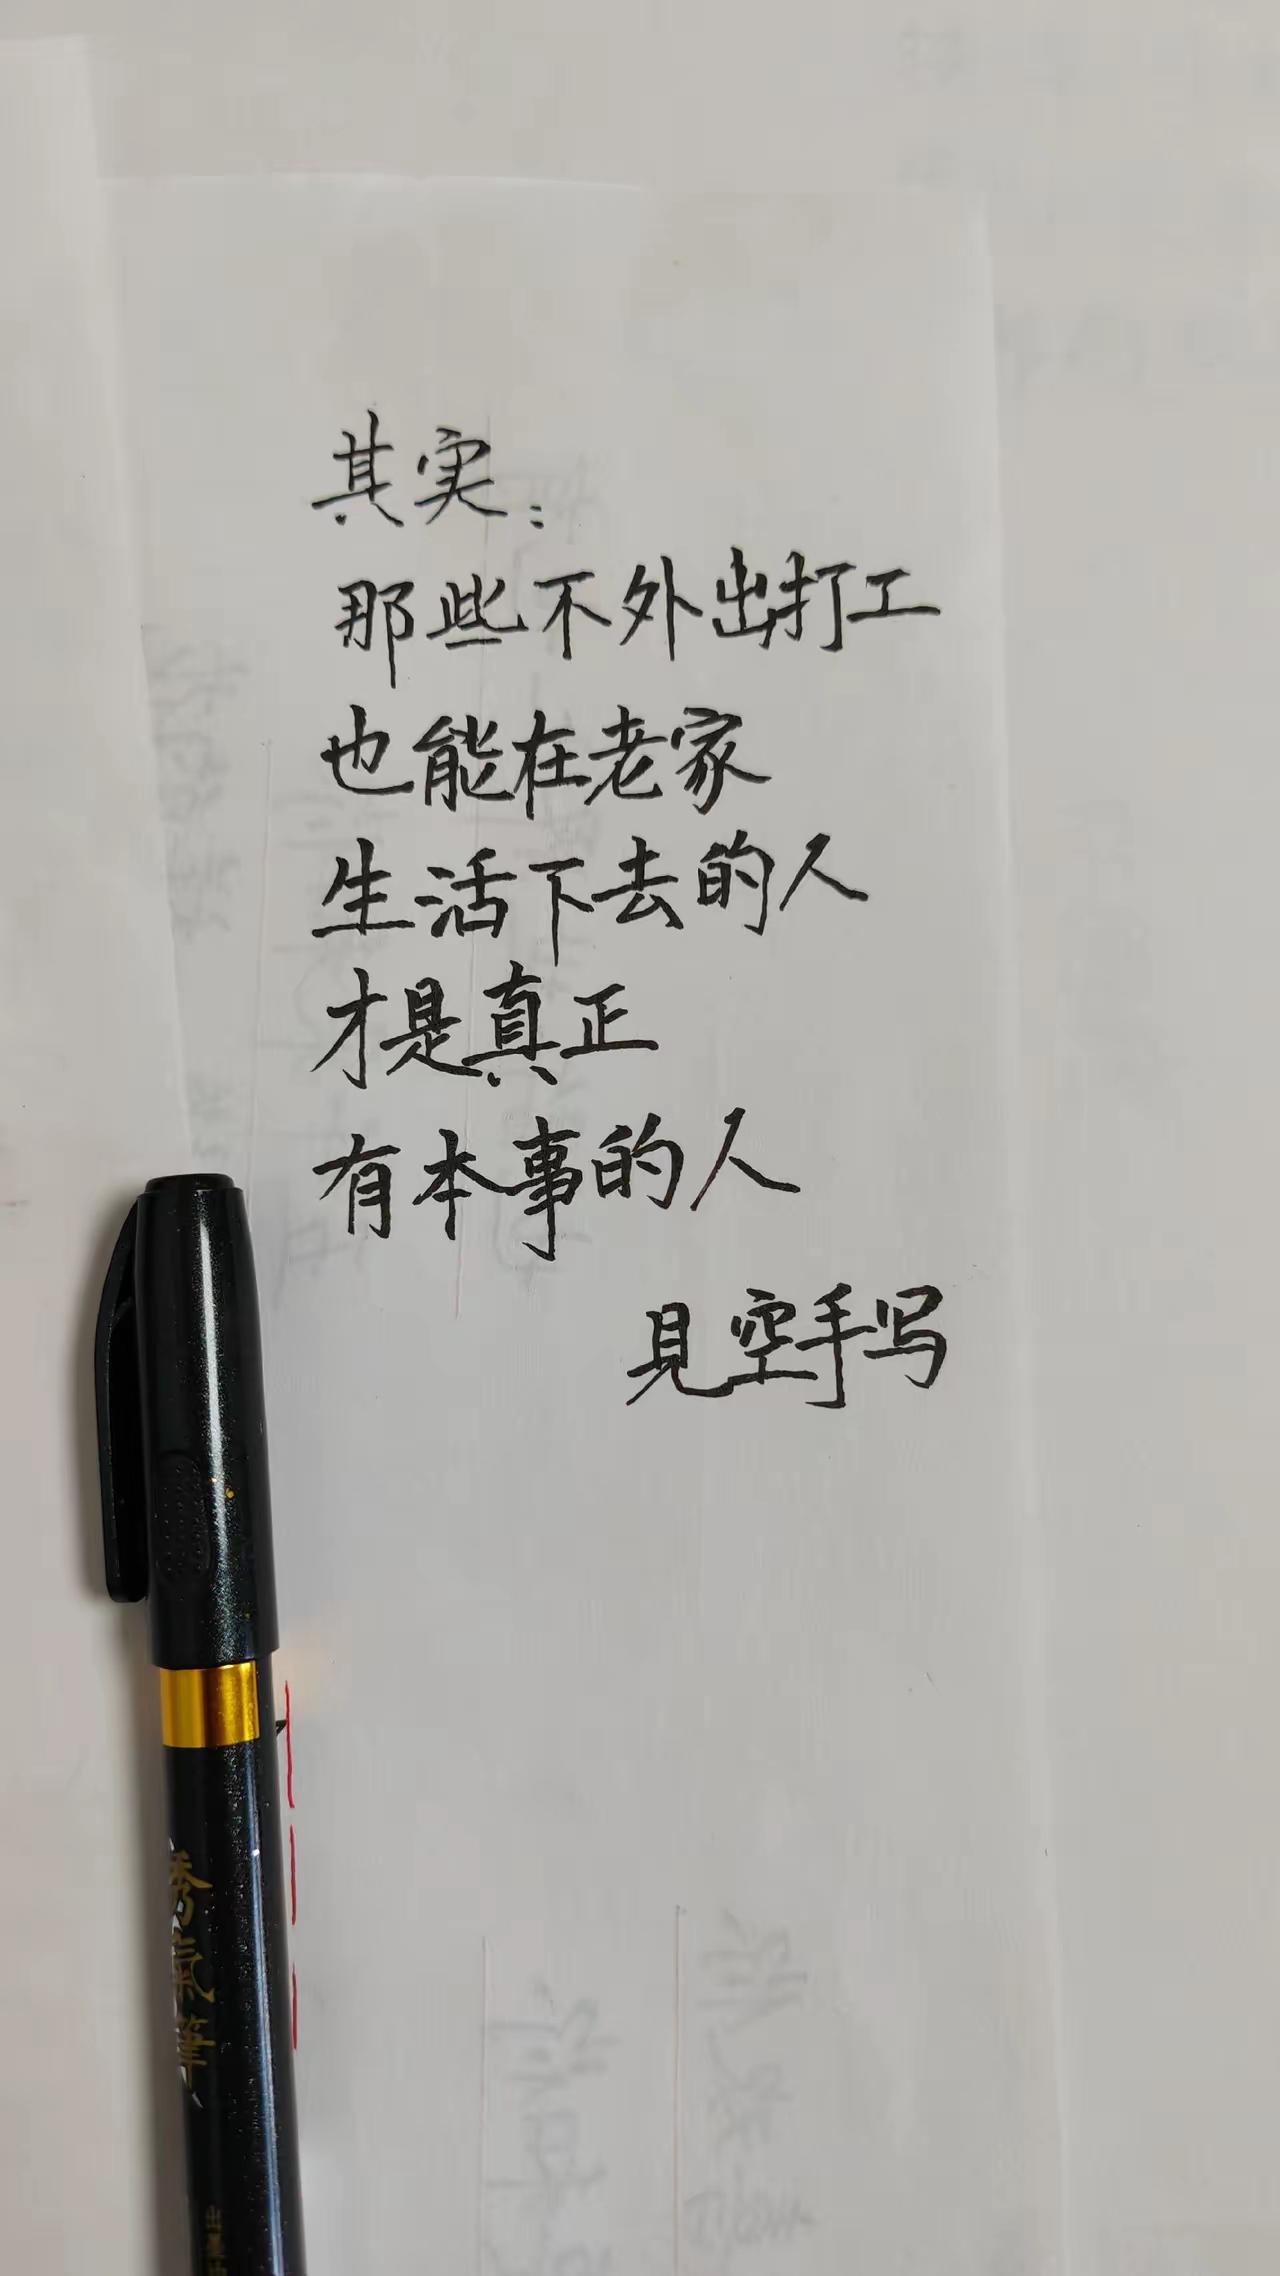 其实：
那些不外出打工
也能在老家
生活下去的人
才是真正
有本事的人
見空手写
秀氣筆